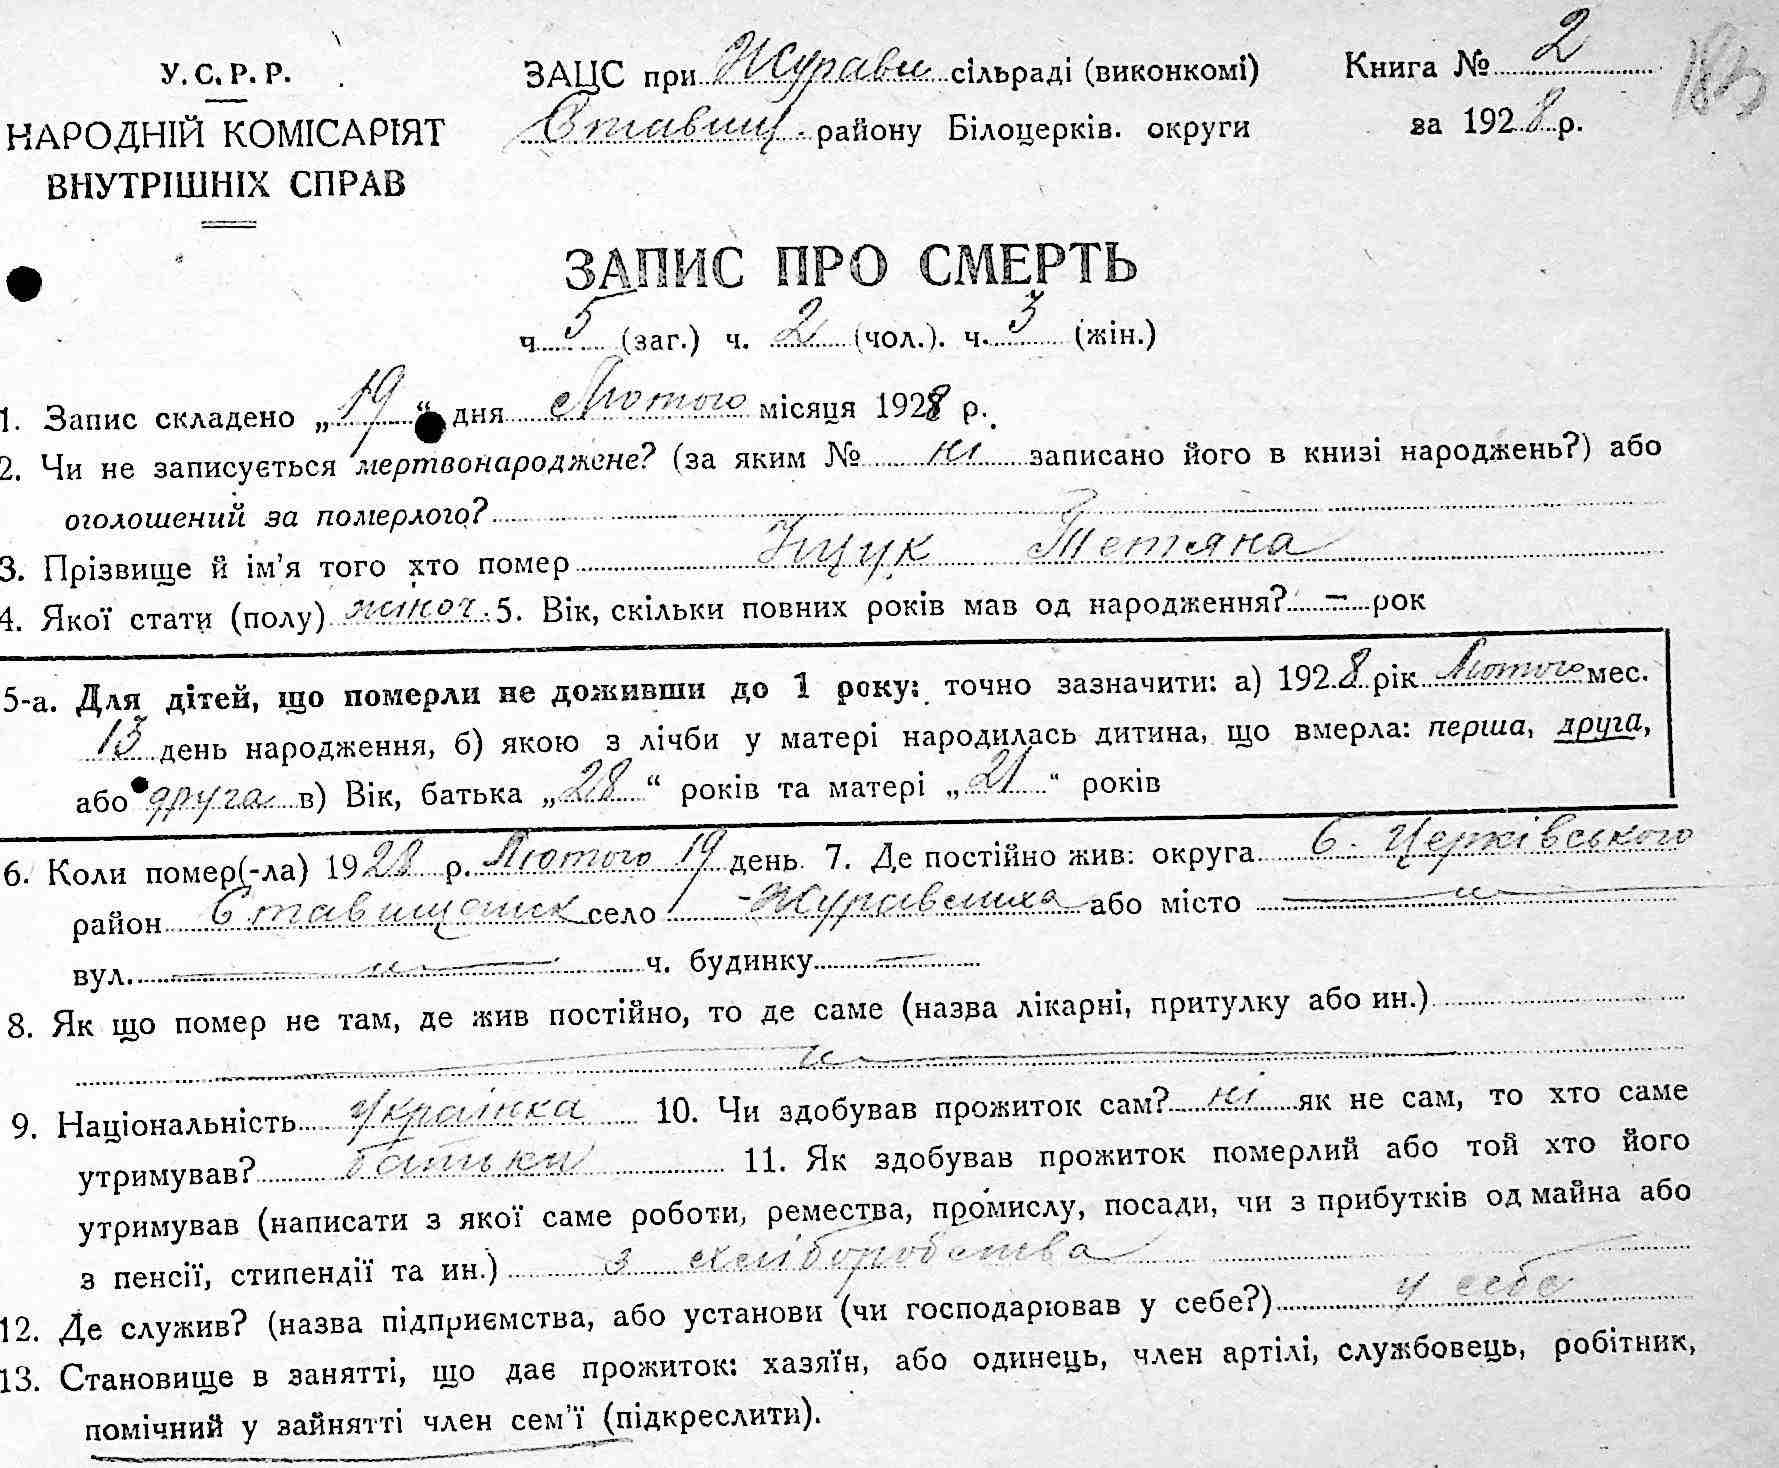 У.С.Р.Р.
НАРОДНІЙ КОМІСАРІЯТ
ВНУТРІШНІХ СПРАВ
ЗАЦС при Журавл сільраді (виконкомі)
Ставищ. району Білоцерків. округи
Книга № 2
за 1928 р.
183
ЗАПИС ПРО СМЕРТЬ
ч 5 (заг.) ч. 2 (чол.). ч. 3 (жін.)
1. Запис складено „19“ дня Лютого місяця 1928 р.
2. Чи не записується мертвонароджене? (за яким № ні записано його в книзі народжень?) або
оголошений за померлого?
3. Прізвище й ім'я того хто помер Іщук Тетяна
4. Якої стати (полу) жіноч. 5. Вік, скільки повних років мав од народження? — рок
5-а. Для дітей, що померли не доживши до 1 року: точно зазначити: а) 1928 рік Лютого мес.
13 день народження, б) якою з лічби у матері народилась дитина, що вмерла: перша, друга,
або друга в) Вік, батька „28“ років та матері „21“ років
6. Коли помер(-ла) 1928 р. Лютого 19 день. 7. Де постійно жив: округа Б. Церківського
район Ставищанськ село Журавлиха або місто — „ —
вул. — „ — ч. будинку —
8. Як що помер не там, де жив постійно, то де саме (назва лікарні, притулку або ин.)
— „ —
9. Національність Українка 10. Чи здобував прожиток сам? ні як не сам, то хто саме
утримував? батьки 11. Як здобував прожиток померлий або той хто його
утримував (написати з якої саме роботи, ремества, промислу, посади, чи з прибутків од майна або
з пенсії, стипендії та ин.) з хліборобства
12. Де служив? (назва підприємства, або установи (чи господарював у себе?) у себе
13. Становище в занятті, що дає прожиток: хазяїн, або одинець, член артілі, службовець, робітник,
помічний у зайнятті член сем'ї (підкреслити).